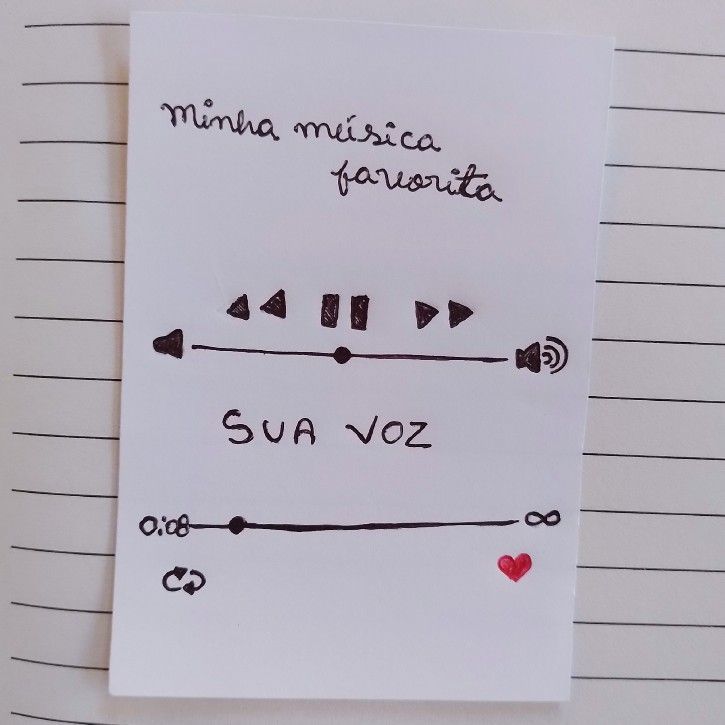 minha música
favorita
SUA VOZ
0:08 ∞